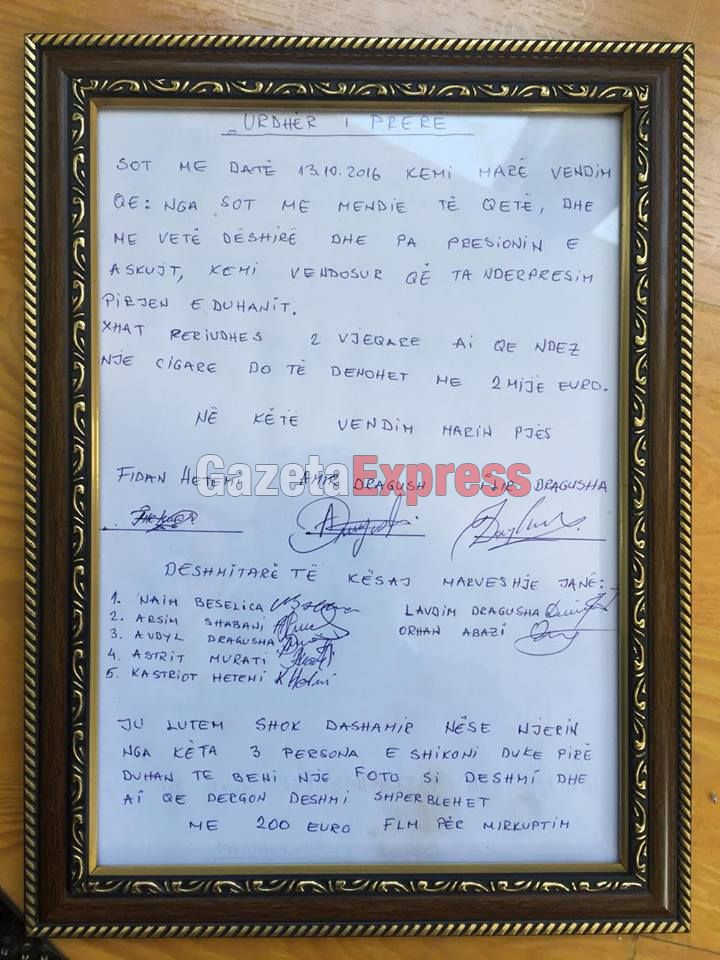 URDHËR I PRERË
SOT ME DATË 13.10.2016 KEMI MARË VENDIM
QE: NGA SOT ME MENDIE TË QETË, DHE
ME VETË DËSHIRË DHE PA PRESIONIN E
ASKUJT, KEMI VENDOSUR QË TA NDERPRESIM
PIRJEN E DUHANIT.
XHAT PERIUDHES 2 VJEQARE AI QE NDEZ
NJE CIGARE DO TË DENOHET ME 2 MIJE EURO.
NË KËTË VENDIM MARIN PJËS
FIDAN HETEMI DRAGUSH DRAGUSHA
GazetaExpress
DËSHMITARË TË KËSAJ MARVESHJE JANË:
1. NAIM BESELICA LAVDIM DRAGUSHA
2. ARSIM SHABANI ORHAN ABAZI
3. AVDYL DRAGUSHA
4. ASTRIT MURATI
5. KASTRIOT HETEMI
JU LUTEM SHOK DASHAMIR NËSE NJERIN
NGA KËTA 3 PERSONA E SHIKONI DUKE PIRË
DUHAN TE BENI NJE FOTO SI DESHMI DHE
AI QE DERGON DESHMI SHPERBLEHET
ME 200 EURO FLM PËR MIRKUPTIM